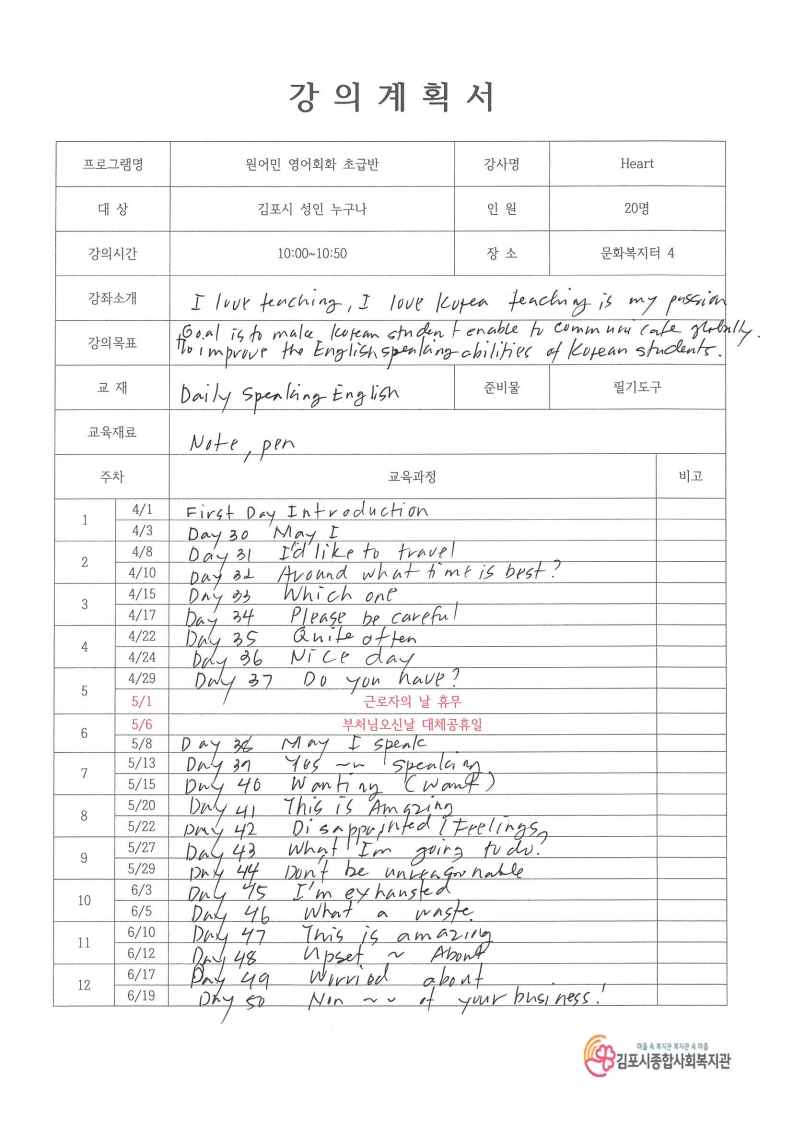 강 의 계 획 서
프로그램명 원어민 영어회화 초급반 강사명 Heart
대 상 김포시 성인 누구나 인 원 20명
강의시간 10:00~10:50 장 소 문화복지터 4
강좌소개 I love teaching, I love Korea teaching is my passion
강의목표 Goal is to make Korean student enable to communicate globally.
to improve the English speaking abilities of Korean students.
교 재 Daily Speaking English 준비물 필기도구
교육재료 Note, pen
주차 교육과정 비고
1 4/1 First Day Introduction
4/3 Day 30 May I
2 4/8 Day 31 I'd like to travel
4/10 Day 32 Around what time is best?
3 4/15 Day 33 Which one
4/17 Day 34 Please be careful
4 4/22 Day 35 Quite often
4/24 Day 36 Nice day
5 4/29 Day 37 Do you have?
5/1 근로자의 날 휴무
6 5/6 부처님오신날 대체공휴일
5/8 Day 38 May I speak
7 5/13 Day 39 Yes ~~ speaking
5/15 Day 40 Wanting (want)
8 5/20 Day 41 This is Amazing
5/22 Day 42 Disappointed / Feelings
9 5/27 Day 43 What I'm going to do?
5/29 Day 44 Don't be unreasonable
10 6/3 Day 45 I'm exhausted
6/5 Day 46 What a waste.
11 6/10 Day 47 This is amazing
6/12 Day 48 Upset ~ About
12 6/17 Day 49 Worried about
6/19 Day 50 Non ~~ of your business!
마을 속 복지관 복지관 속 마을
김포시종합사회복지관